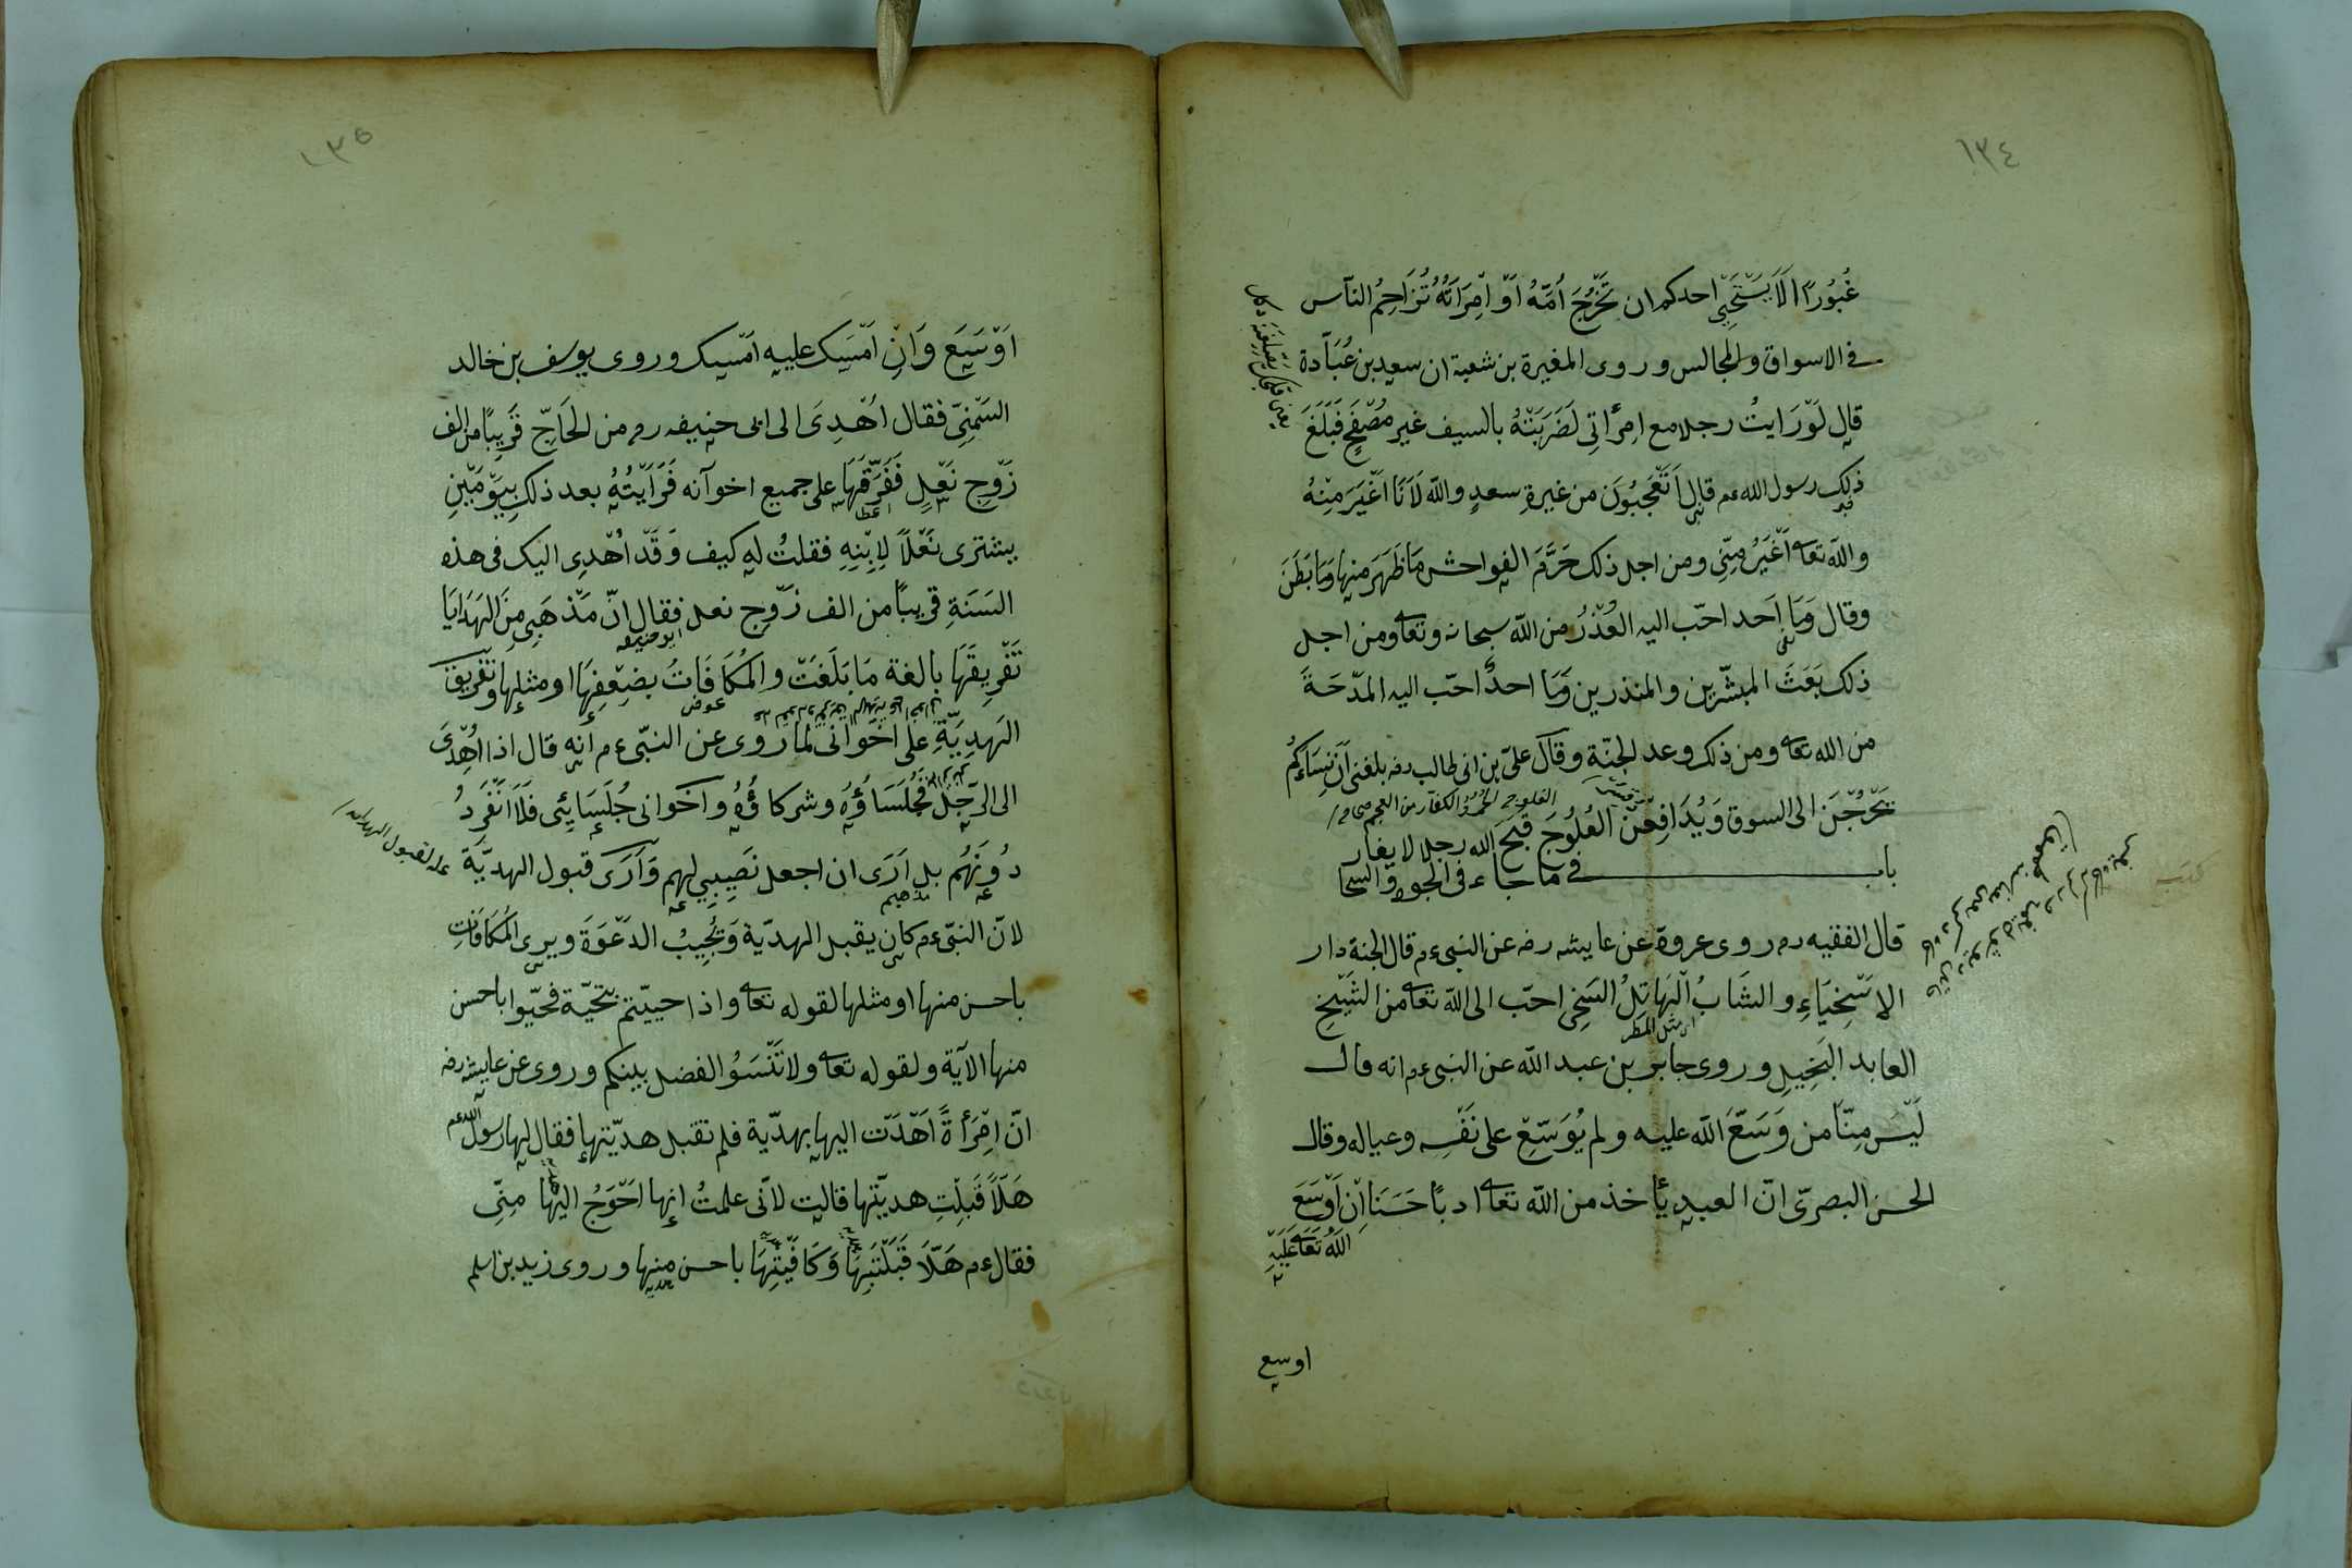 ١٣٤
غُيُورًا الَا يَسْتَحْيِي احدكم ان تَخْرُجَ اُمّهُ اَوْ اِمْرَاَتُهُ تُزَاحِمُ النآس
فى الاسواق والمجالس وروى المغيرة بن شعبة ان سعيد بن عُبَآدة
قال لَوْ رَايتُ رجلا مع امِرأتِى لَضَرَبْتُهُ بالسيف غير مُصْفَحٍ فَبَلَغَ
ذلك رسول الله عم قال اَتَعْجَبُونَ من غيرةِ سعدٍ والله لَاَنَا اَغْيَرَ مِنْهُ
والله تعا اَغْيَرُ مِنّى ومن اجل ذلك حَرَّمَ الفواحش مَا ظَهَرَ منها وَمَا بَطَنَ
وقال وَمَا اَحد احَبّ اليه العُذْرُ من الله سبحانه وتعا ومن اجل
ذلك بَعَثَ المبشّرين والمنذرين وَمَا احدٌ احَبّ اليه المدْحَةَ
من الله تعا ومن ذلك وعد الجنّة وقال علىّ بن ابى طالب رضه بلغنى اَنّ نِسَاءَكُمْ
يَخْرُجْنَ الى السوق وَيُدَافِعْنَ العُلُوجَ قَبَحَ الله رجلا لا يغار
باب فى ما جاء فى الجود والسخا
قال الفقيه رح روى عروة عن عايشه رضه عن النبى ءم قال الجنة دار
الاسْخِيَاءِ والشَابُ الْهَاتِلُ السَخِى احَبّ الى الله تعا من الشَيْخِ
اى مثل المطر
العابد البَخِيلِ وروى جابر بن عبد الله عن النبى ءم انه قال
لَيْسَ مِنّا من وَسَعَّ الله عليه ولم يُوَسّعْ على نَفْسِه وعياله وقال
الحسن البصرىّ انّ العبد يأخذ من الله تعا ادبًا حَسَنَا اِنْ اَوْسَعَ
اللهُ تَعَا عَلَيْهِ
اوسع
١٣٥
اَوْسَعَ وَاِنْ اَمْسَكَ عليه اَمْسَكَ وروى يوسف بن خالد
السَمْتِىّ فقال اُهْدِىَ الى ابى حنيفه رح من الحَاجّ قَرِيبًا من الف
زَوْجِ نَعْلٍ فَفَرَّقَهَا على جميع اخوآنه فَرَاَيْتُهُ بعد ذلك بِيَوْمَيْنِ
يشترى نَعْلًا لِاِبْنِهِ فقلتُ له كيف وَقَدْ اُهْدِى اليك فى هذه
السَنَةِ قريبًا من الف زَوْجِ نعل فقال انّ مَذْهَبِى مِنَ الهَدَايَا
ابو حنيفه
تَفْرِيقَهَا بالغة مَا بَلَغَتْ والمُكَافَاتُ بِضِعْفِهَا او مثلها وتَفْرِيق
عوض
الهَدِيّةِ على اخْوَانى لما روى عن النبّى ءم انه قال اذا اُهْدِىَ
الى الرّجُل فجُلَسَاؤُهُ وشركاؤُهُ واخوانى جُلَسَايِئى فَلَا اَنْفَرِدُ
دُونَهُم بل اَرَى ان اجعل نَصِيبِى لهم وَاَرَى قبول الهديّةَ
لانّ النبّى ءم كان يقبل الهديّة وَيُجِيبُ الدَعْوَةَ ويرى المُكَافَاتِ
باحسن منها او مثلها لقوله تعا واذا حييّتم بتحيّة فحيّوا باحسن
منها الآية ولقوله تعا ولا تَنْسَوُ الفضل بينكم وروى عن عايشه رضه
انّ اِمْرَأةً اَهْدَتْ اليها بهديّة فلم تقبل هديّتها فقال لها رسول الله ءم
هَلّاَ قَبلْتِ هديّتها قالت لانّى علمتُ انها احْوَجُ اليها مِنّى
فقال ءم هَلّاَ قَبَلْتَهَا وَكَافَيْتِهَا باحسن منها وروى زيد بن اسلم